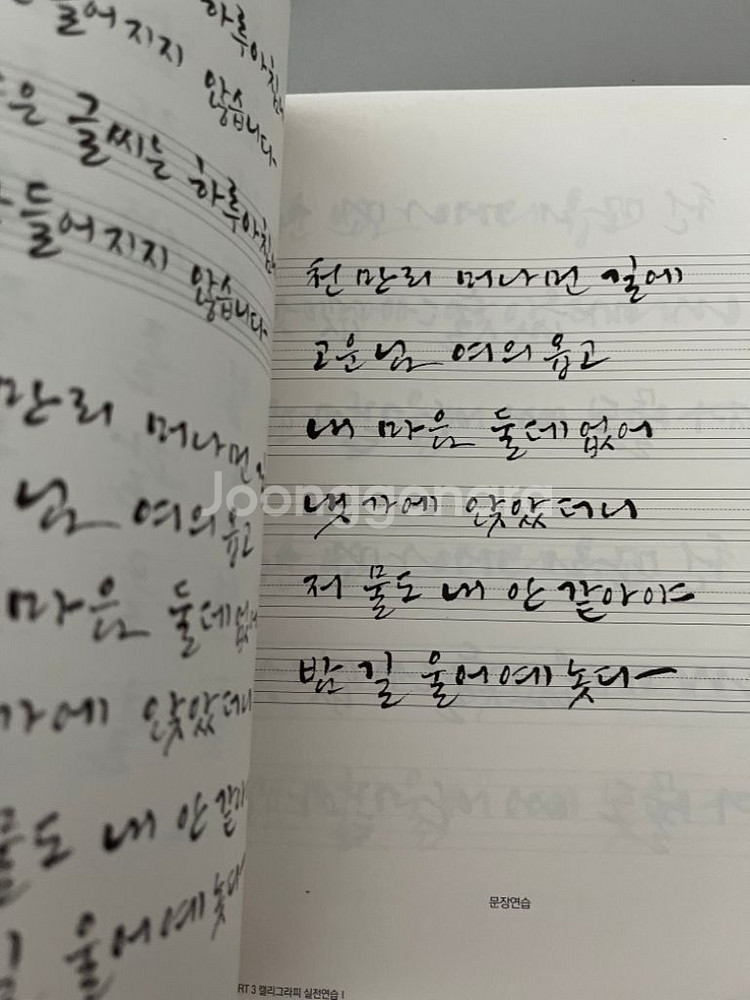 하루아침
들어지지 않습니다
은 글씨는 하루아침
들어지지 않습니다
만리 머나먼
님 여의옵고
마음 둘데없어
가에 앉았더니
물도 내 안 같아
울어예놋다
RT 3 캘리그라피 실전연습 I
천 만리 머나먼 길에
고운님 여의옵고
내 마음 둘데없어
냇가에 앉았더니
저 물도 내 안 같아야
밤 길 울어예놋다
문장연습
Joonggonara